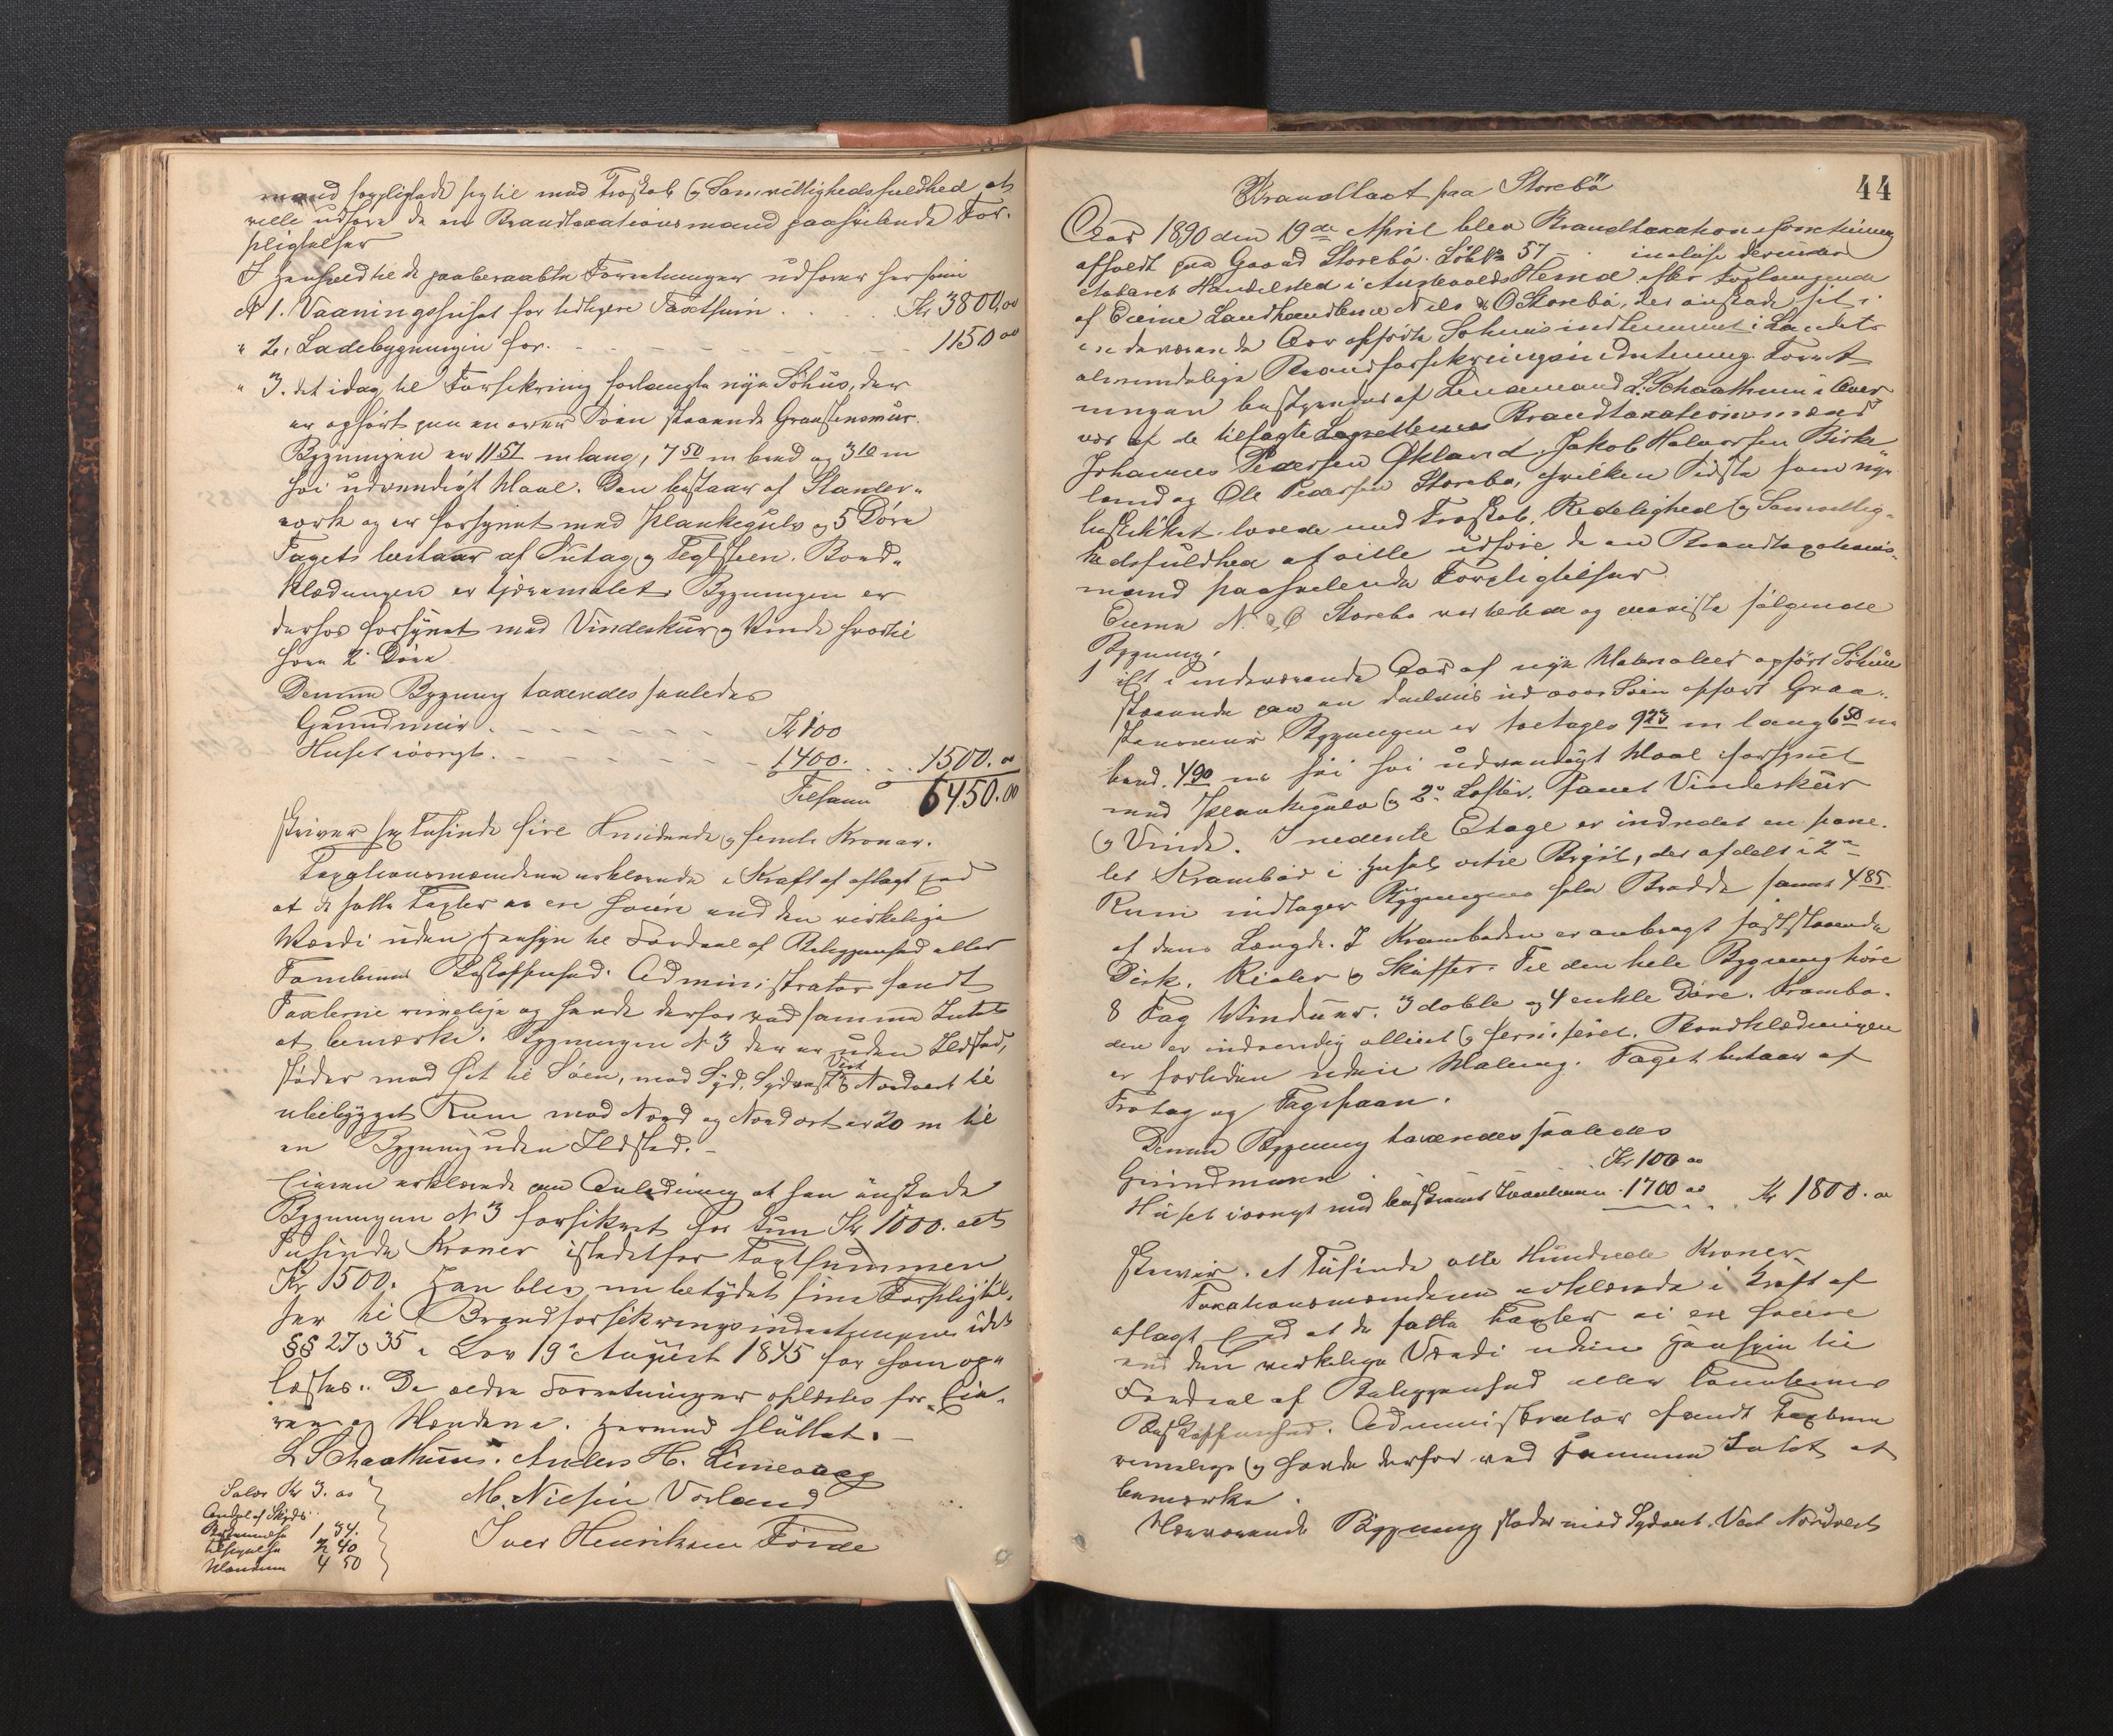 mand forpligtede sig til med Troskab og Samvittighedsfuldhed at
ville udføre de en Brandtaxationsmand paahvilende For-
pligtelser
I Henhold til de paaberaabte Forretninger udføres her som
No 1. Vaaningshuset for tidligere Taxtsum . . . . Kr 3800,00
" 2. Ladebygningen for. 1150 00
" 3. det idag til Forsikring forlangte nye Söhus, der
er opført paa en over Søen staaende Graastensmur.
Bygningen er 11 57 m lang, 7 50 m bred og 3 10 m
høi udvendigt Maal. Den bestaar af Stander-
værk og er forsynet med Plankegulv og 5 Döre
Taget bestaar af Sutag og Teglsteen. Bord-
klædningen er tjæremalet. Bygningen er
derhos forsynet med Vindeskur og Vinde hvortil
hører 2 Døre
Denne Bygning taxeredes saaledes
Grundmur . Kr 100
Huset iøvrigt . 1400. . . 1500. 00
Tilsam 6450.00
skriver sex Tusinde fire Hundrede og femti Kroner.
Taxationsmændene erklærede i Kraft af aflagt Eed
at de satte Taxter ei ere høiere end den virkelige
Værdi uden Hensyn til Fordeel af Beliggenhed eller
Tomternes Beskaffenhed. Administrator fandt
Taxterne rimelige og havde derfor ved samme Intet
at bemærke. Bygningen No 3 der er uden Ildsted,
støder mod Øst til Søen, mod Syd, Sydvest, Vest og Nordvest til
ubebygget Rum mod Nord og Nordost er 20 m til
en Bygning uden Ildsted. -
Eieren erklærede paa Anledning at han ønskede
Bygningen No 3 forsikret for kun Kr 1000. eet
Tusinde Kroner istedetfor Taxtsummen
Kr 1500. Han blev nu betydet sine Forpligtel-
ser til Brandforsikringsindretningen idet
§§ 27 og 35 i Lov 19 August 1845 for ham op-
læstes. De ældre Forretninger oplæstes for Eie-
ren og Mændene. Hermed sluttet. -
L Schaathun. Anders H. Linevaag
M. Nilsen Vorland
Iver Henriksen Förde
Salær Kr 3. 00
Andel af Skyds
1 34.
Tilsigelse 2 40
Mændene 4 50
44
Brandtaxt paa Storebö
Aar 1890 den 19de April blev Brandtaxationsforretning
afholdt paa Gaard Storebö. Löbno 57 - matr. derunder
Handelssted i Austevolds Herred efter Forlangende
af Eierne Landhandlerne Nils & O Storebö, der ønskede sit i
indeværende Aar opførte Sohuus indlemmet i Landets
almindelige Brandforsikringsindretning. Forret-
ningen bestyredes af Lensmand L. Schaathun i Over
vær af de tilsagte Brandtaxationsmænd
Johannes Pedersen Økland, Jakob Halvorsen Birke
land og Ole Pedersen Storebø, hvilken sidste som nys
beskikket lovede med Troskab, Redelighed og Samvittig-
hedsfuldhed at ville udføre de en Brandtaxations-
mand paahvilende Forpligtelser
Eierne N. & O Storebø var tilstede og anviste følgende
Bygning.
1 et i indeværende Aar af nye Materialier opført Söhuus
staaende paa en deelvis ud over Søen opført Graa-
stensmur Bygningen er toetages 9 23 m lang 6 50 m
bred. 4 90 m høi udvendigt Maal forsynet
med Plankegulv og 2de Lofter. samt Vindeskur
og Vinde. I nederste Etage er indredet en pane-
let Krambod i Huset østre Brÿst, der afdelt i 2de
Rum indtager Bygningens hele Bredde samt 4 85
af dens Længde. I Kramboden er anbragt faststaaende
Disk, Reoler og Skuffer. Til den hele Bygning høre
8 Fag Vinduer. 3 doble og 4 enkle Døre. Krambo-
den er indvendig olliet og ferniseret. Bordklædningen
er forhden uden Maling. Taget bestaar af
Trotag og Tagspaan.
Denne Bygning taxeredes saaledes
Grundmuren . . Kr 100 00
Huset iøvrigt med beskrevet Inventarium . 1700 00 . . Kr 1800. 00
skriver . et Tusinde otte Hundrede Kroner
Taxationsmændene erklærede i Kraft af
aflagt Eed at de satte Taxter ei ere høiere
end den virkelige Værdi uden Hensyn til
Fordeel af Beliggenhed eller Tomternes
Beskaffenhed. Administrator fandt Taxterne
rimelige og havde derfor ved samme Intet at
bemærke.
Nærværende Bygning støder mod Sydvest. Vest Nordvest